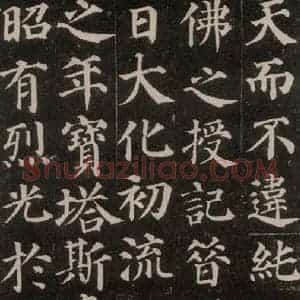 天而不違純
佛之授記昔
日大化初流
之年寶塔斯
昭有烈光於
Shufaziliao.COM